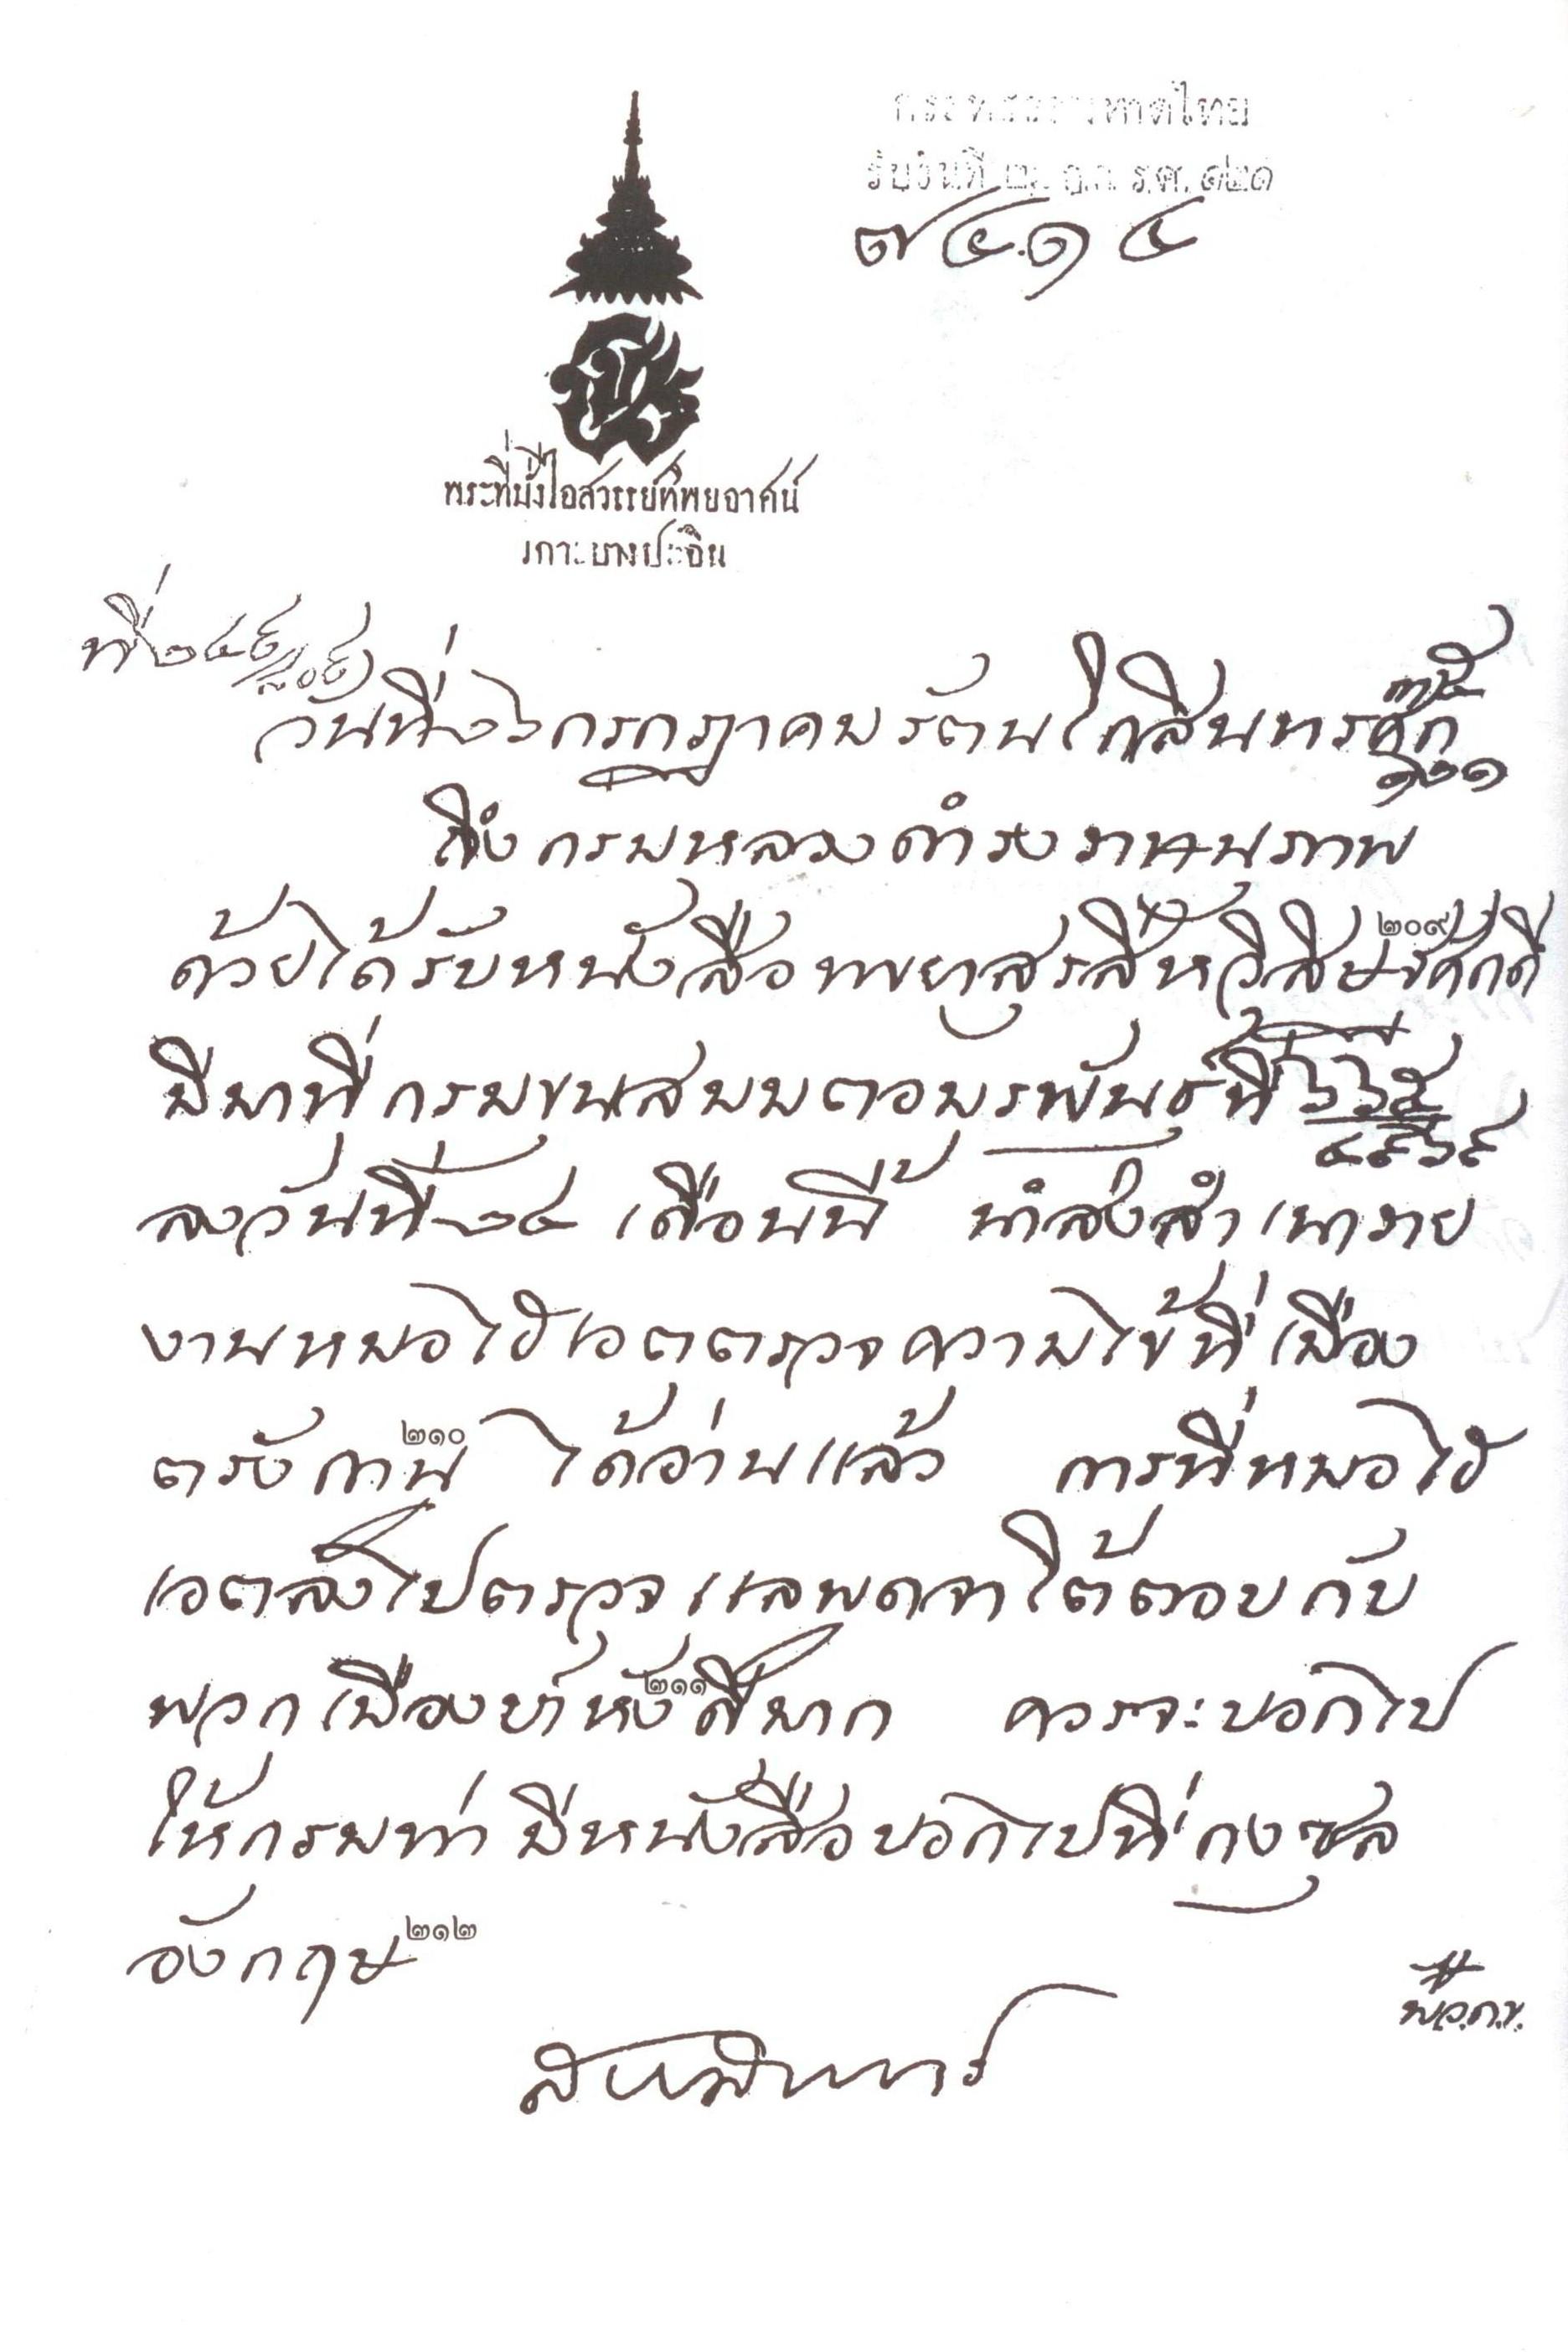 กระทรวงมหาดไทย
รับวันที่ ก.ค. ร.ศ. ๑๒๑
๗๔๑๔
พระที่นั่งไอสวรรย์ทิพยอาศน์
เกาะบางปะอิน
ที่
วันที่ ๒๖ กรกฎาคม รัตนโกสินทรศก ๓๕
๑๒๑
ถึง กรมหลวงดำรงราชานุภาพ
ด้วยได้รับหนังสือพระยาสุรสีห์วิสิษฐศักดิ์ ๒๐๙
มีมาที่กรมขุนสมมตอมรพันธุ์ที่ ๖๖๕
ลงวันที่ ๒๔ เดือนนี้ นำส่งสำเนาราย
งานหมอไฮเอตตรวจความไข้ที่เมือง
ตรังกานู ๒๑๐ ได้อ่านแล้ว การที่หมอไฮ
เอตลงไปตรวจแลพูดจาโต้ตอบกับ
พวกเมืองนั้น ๒๑๑ ดีมาก ควรจะบอกไป
ให้กรมท่ามีหนังสือบอกไปที่กงซุล
อังกฤษ ๒๑๒
พ.อ.ก.ข.
สยามินทร์